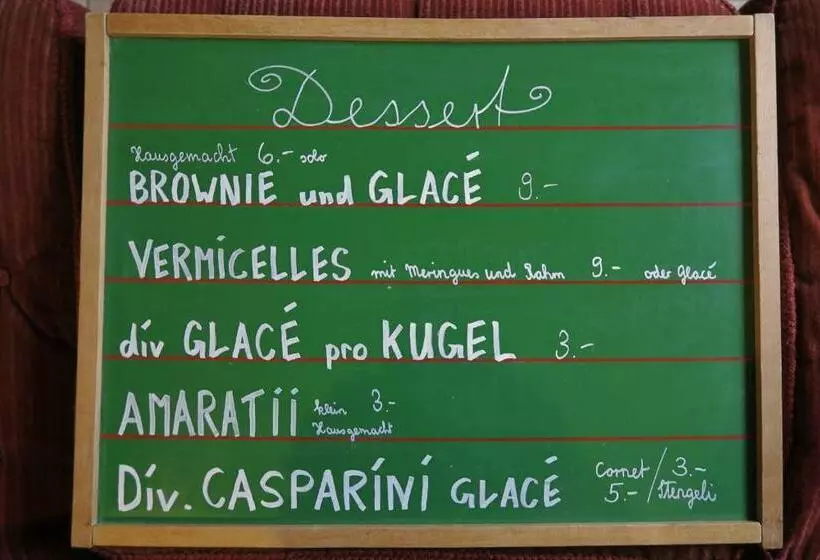 Dessert
Hausgemacht 6.- solo
BROWNIE und GLACÉ 9.-
VERMICELLES mit Meringues und Rahm 9.- oder Glacé
div GLACÉ pro KUGEL 3.-
AMARATII klein 3.-
Hausgemacht
Div. CASPARINI GLACÉ Cornet / 3.-
5.- / Stengeli